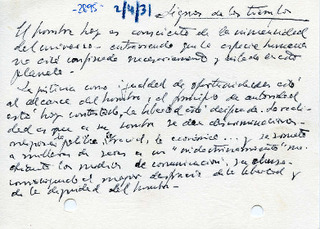 -2895-
2/4/31 Signos de los tiempos
El hombre hoy es consciente de la inmensidad
del universo - entreviendo que la especie humana
no está confinada necesariamente y sólo a este
planeta -
La justicia como igualdad de oportunidades está
al alcance del hombre; el principio de autoridad
está hoy contestado, la libertad está
es que en su nombre se dan discriminaciones
política, social, lo económico... y se somete
a millones de seres a un
los medios de comunicación, en
consiguiendo el mayor desprecio de la libertad y
de la dignidad del hombre -